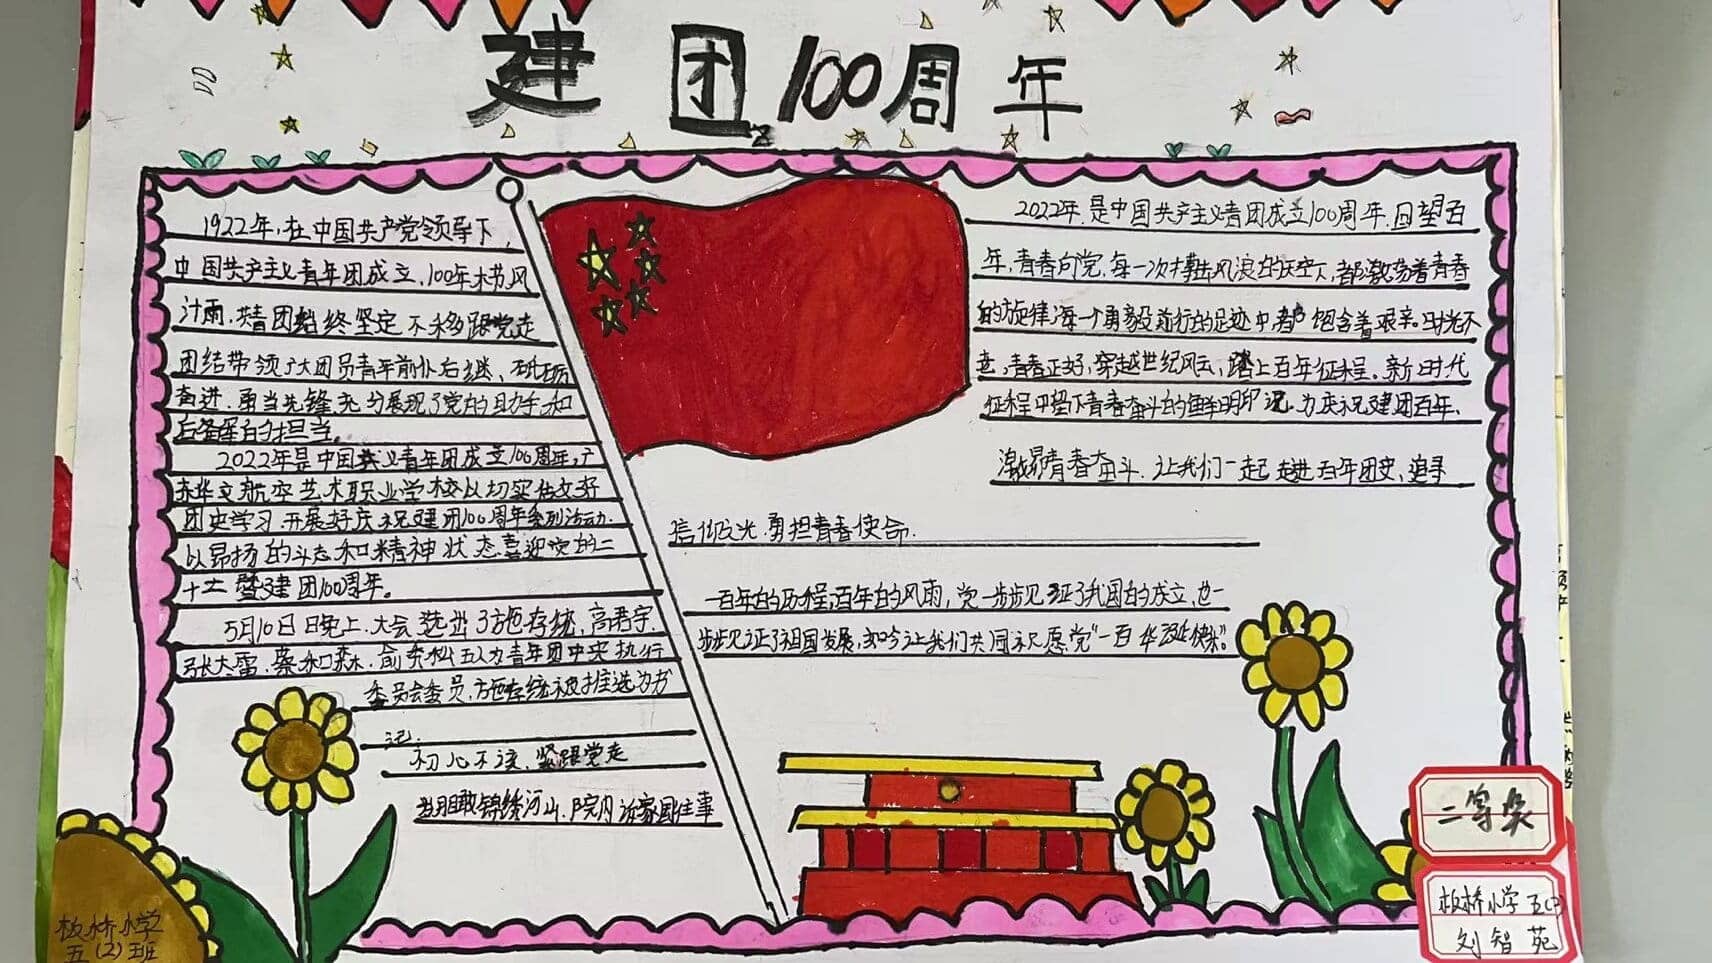 建团100周年
1922年,在中国共产党领导下,
中国共产主义青年团成立,100年栉风
汁雨,共青团始终坚定不移跟党走
团结带领广大团员青年前仆后继、砥砺
奋进,勇当先锋,充分展现了党的助手和
后备军的担当。
2022年是中国共义青年团成立100周年,广
东华文航空艺术职业学校以切实
团史学习,开展好庆祝建团100周年系列活动.
以昂扬的斗志和精神状态喜迎党的二
十大暨建团100周年。
5月10日晚上,大会选出了方施存统,高君宇.
张太雷,蔡和森,俞秀松五人为青年团中央执行
委员会委员,方施存统被推选为书
记.
初心不渝,紧跟党走
锦绣河山,院内诉家国往事
2022年,是中国共产主义青团成立100周年,回望百
年,青春向党,每一次搏击风浪的天空下,都激荡着青春
的旋律;每一个勇毅前行的足迹中,都饱含着艰辛。时光不
老,青春正好,穿越世纪风云,踏上百年征程。新时代
征程中留下青春奋斗的鲜明印记,为庆祝建团百年、
激昂青春奋斗,让我们一起走进百年团史,追寻
信仰之光,勇担青春使命.
一百年的历程,百年的风雨,党一步步见证了我国的成立,也一
步步见证了祖国发展,如今让我们共同祝愿党“一百华诞快乐”。
板桥小学
五(2)班
二等奖
板桥小学
刘智苑